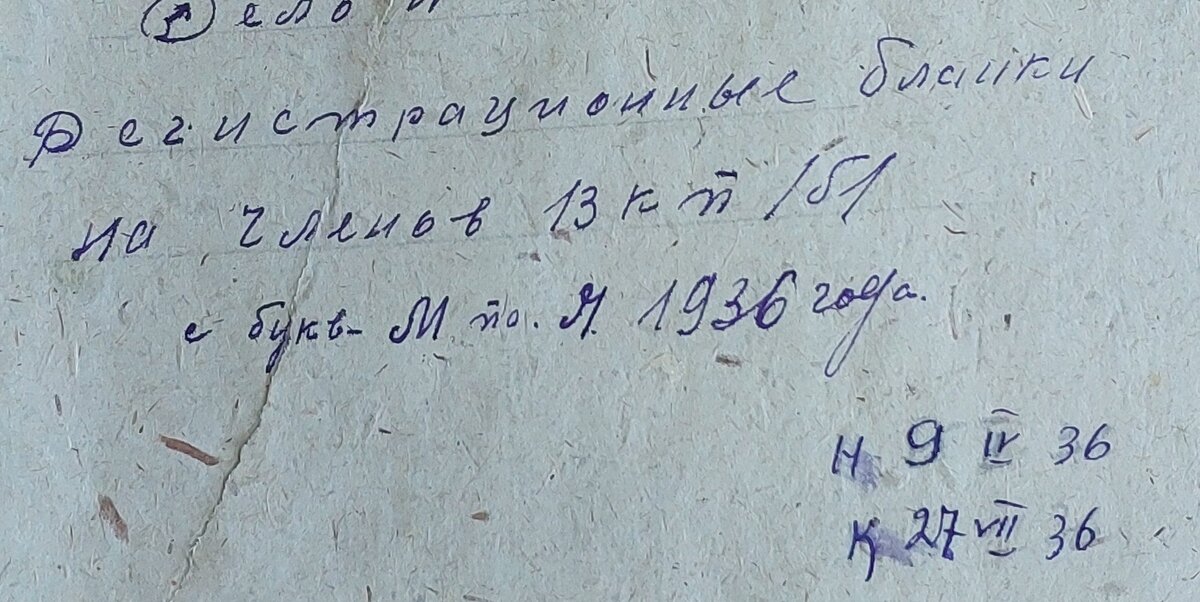 Дело
Регистрационные бланки
на членов ВКП /б/
с букв- М по. Я. 1936 года.
Н 9 IV 36
К 27 VII 36